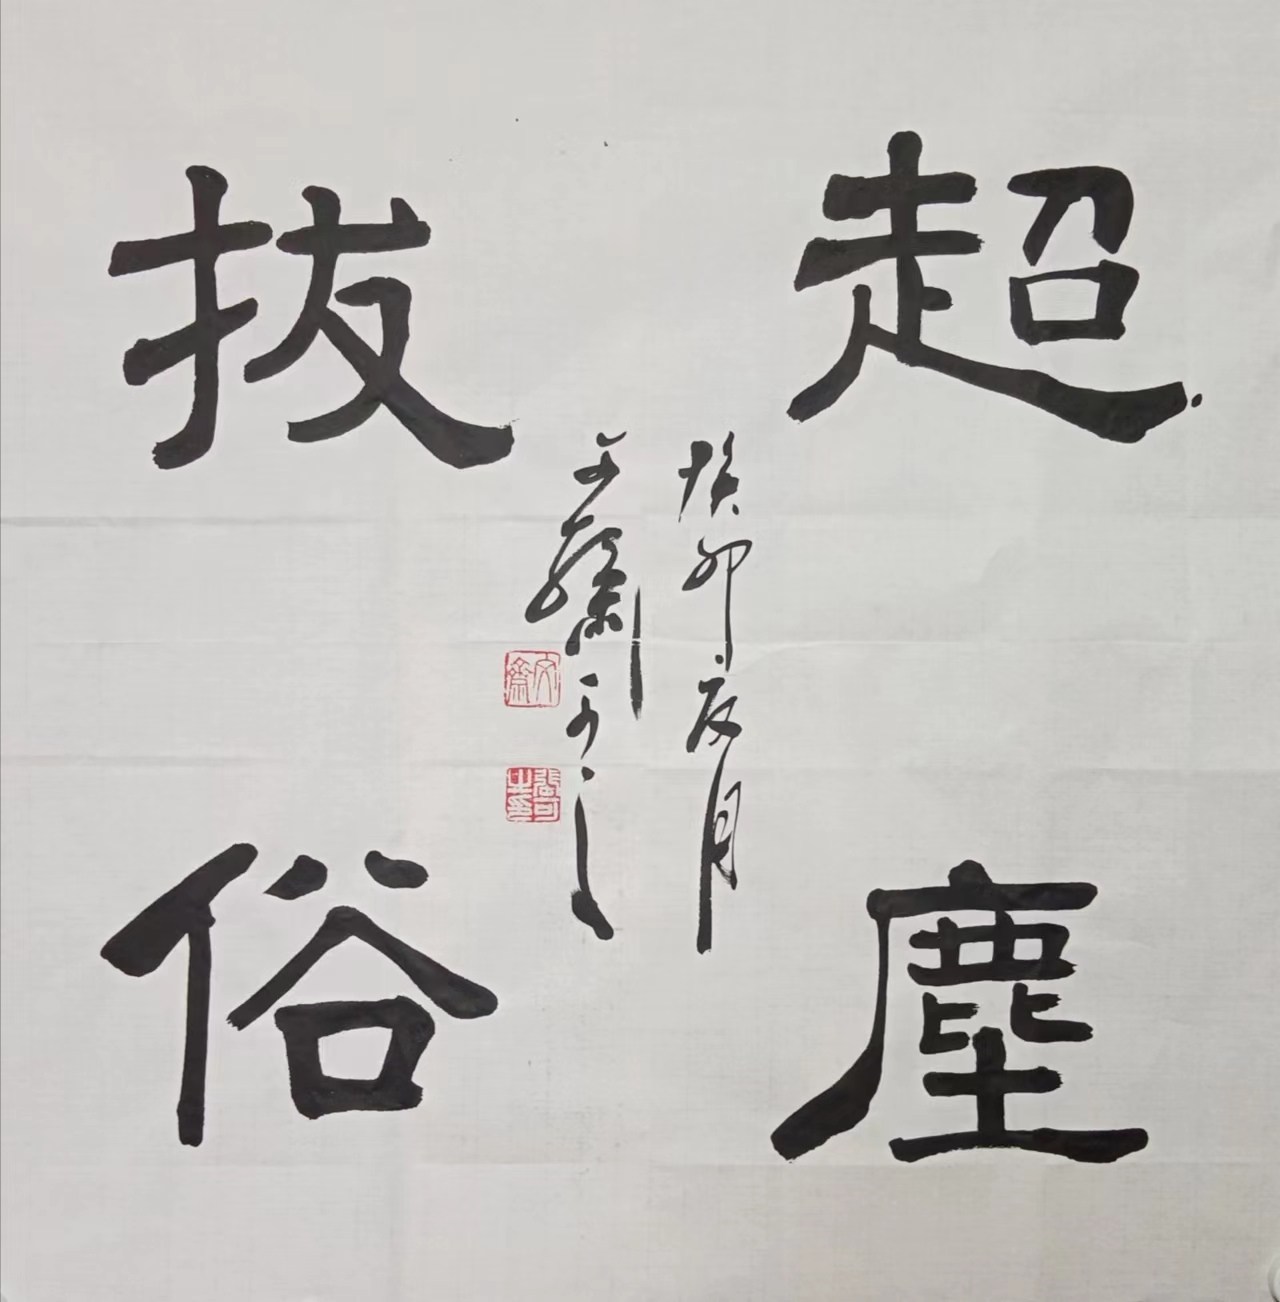 超塵
拔俗
癸卯夏月
文齋